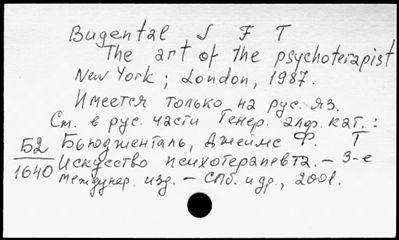 Bugental J F T
The art of the psychoterapist
New York; London, 1987.
Имеется только на рус. яз.
См. в рус. части Генер. алф. кат.:
Б2 Бьюдженталь, Джеймс Ф. Т
1640 Искусство психотерапевта. – 3-е
междунар. изд. – СПб. и др., 2001.